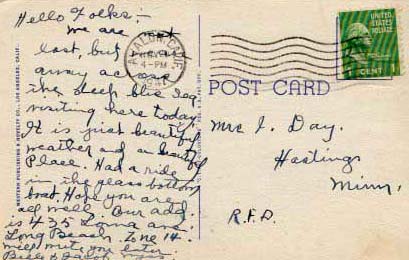 Hello Folks:-
We are not
lost, but
away across
the deep blue sea
visiting here today.
It is just beautiful
weather and a beautiful
Place. Had a ride
in the glass bottom
boat. Hope you are
all well. Our add.
is 435 Ave.
Long Beach. Zone 14.
Will write you later.
Bill &
AVALON, CALIF.
4-PM
UNITED STATES
POSTAGE
1 CENT 1
POST CARD
Mrs J. Day.
Hastings
Minn.
R.F.D.
WESTERN PUBLISHING & NOVELTY CO., LOS ANGELES, CALIF.